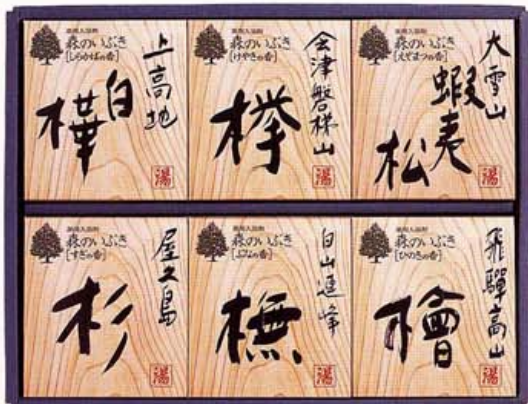 薬用入浴剤
森のいぶき
[しらかばの香]
上高地
白樺
湯
薬用入浴剤
森のいぶき
[けやきの香]
会津磐梯山
欅
湯
薬用入浴剤
森のいぶき
[えぞまつの香]
大雪山
蝦夷松
湯
薬用入浴剤
森のいぶき
[すぎの香]
屋久島
杉
湯
薬用入浴剤
森のいぶき
[ぶなの香]
白山連峰
橅
湯
薬用入浴剤
森のいぶき
[ひのきの香]
飛騨高山
檜
湯